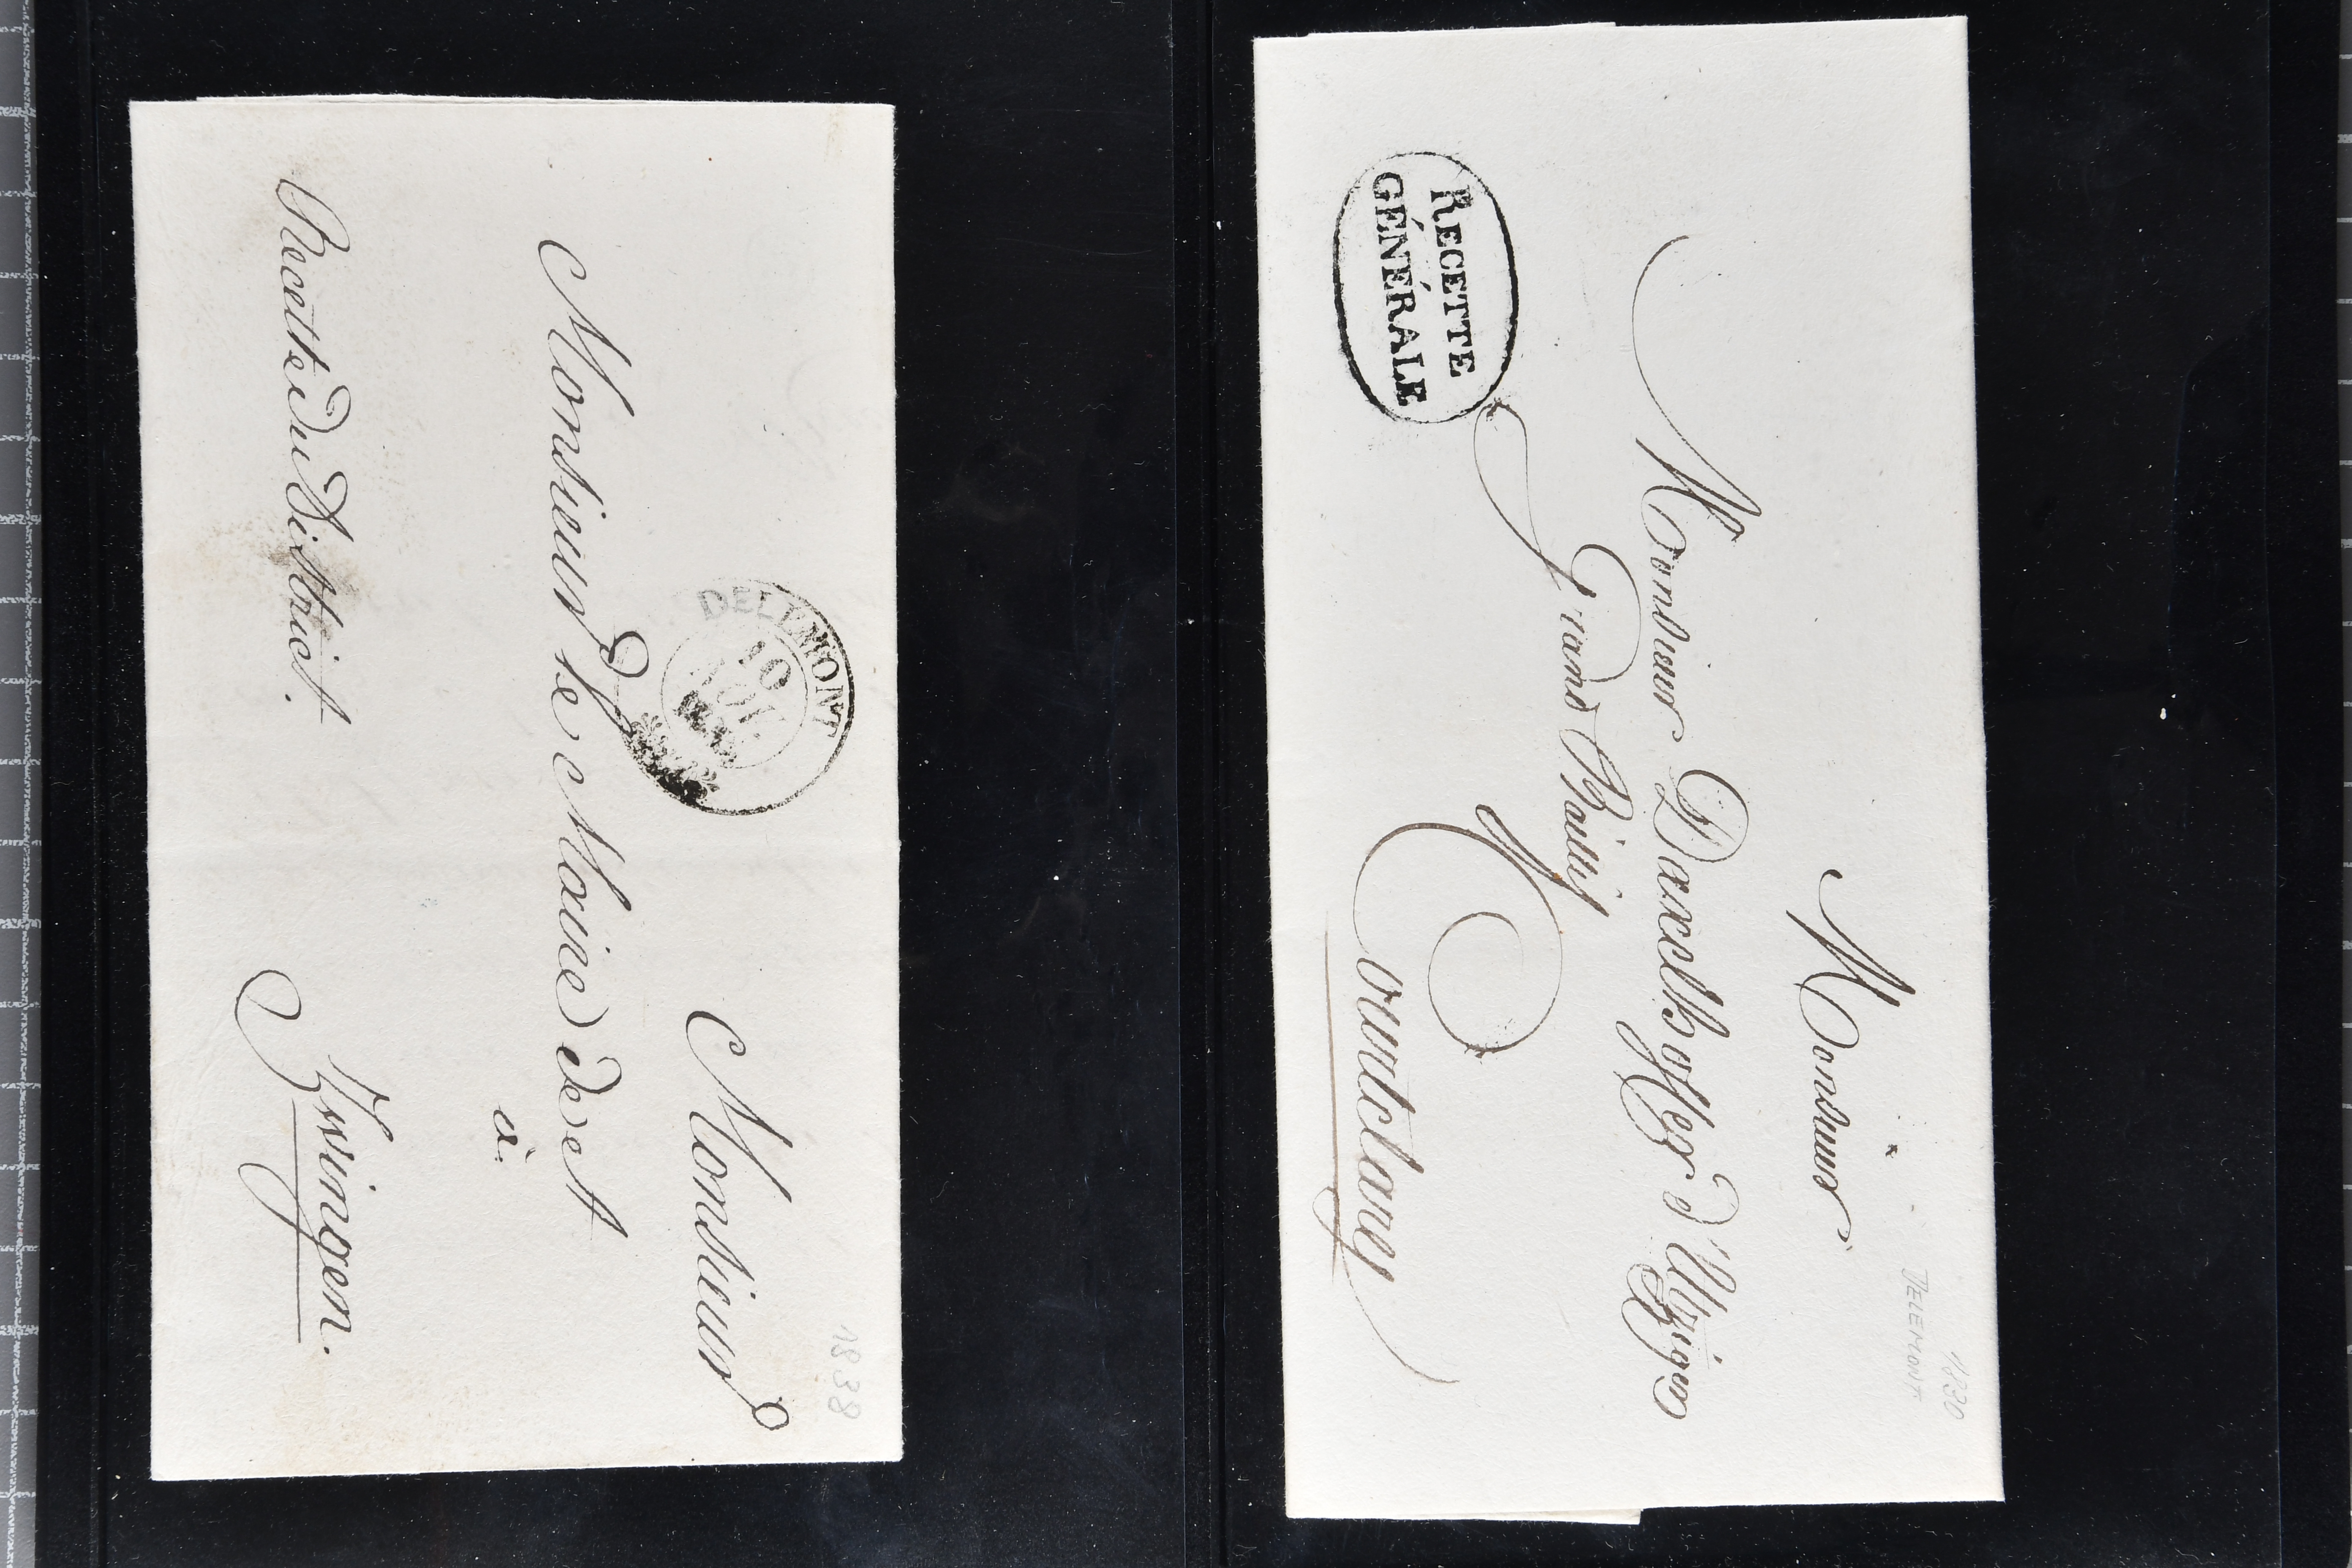 1830
DELEMONT
Monsieur
Monsieur Daxelhoffer d'Utzigen
Grand Bailly
RECETTE
GÉNÉRALE
à
Courtelary
1838
DELEMONT
10
Monsieur
Monsieur le Maire de et
à
Recette du District.
Zwingen.